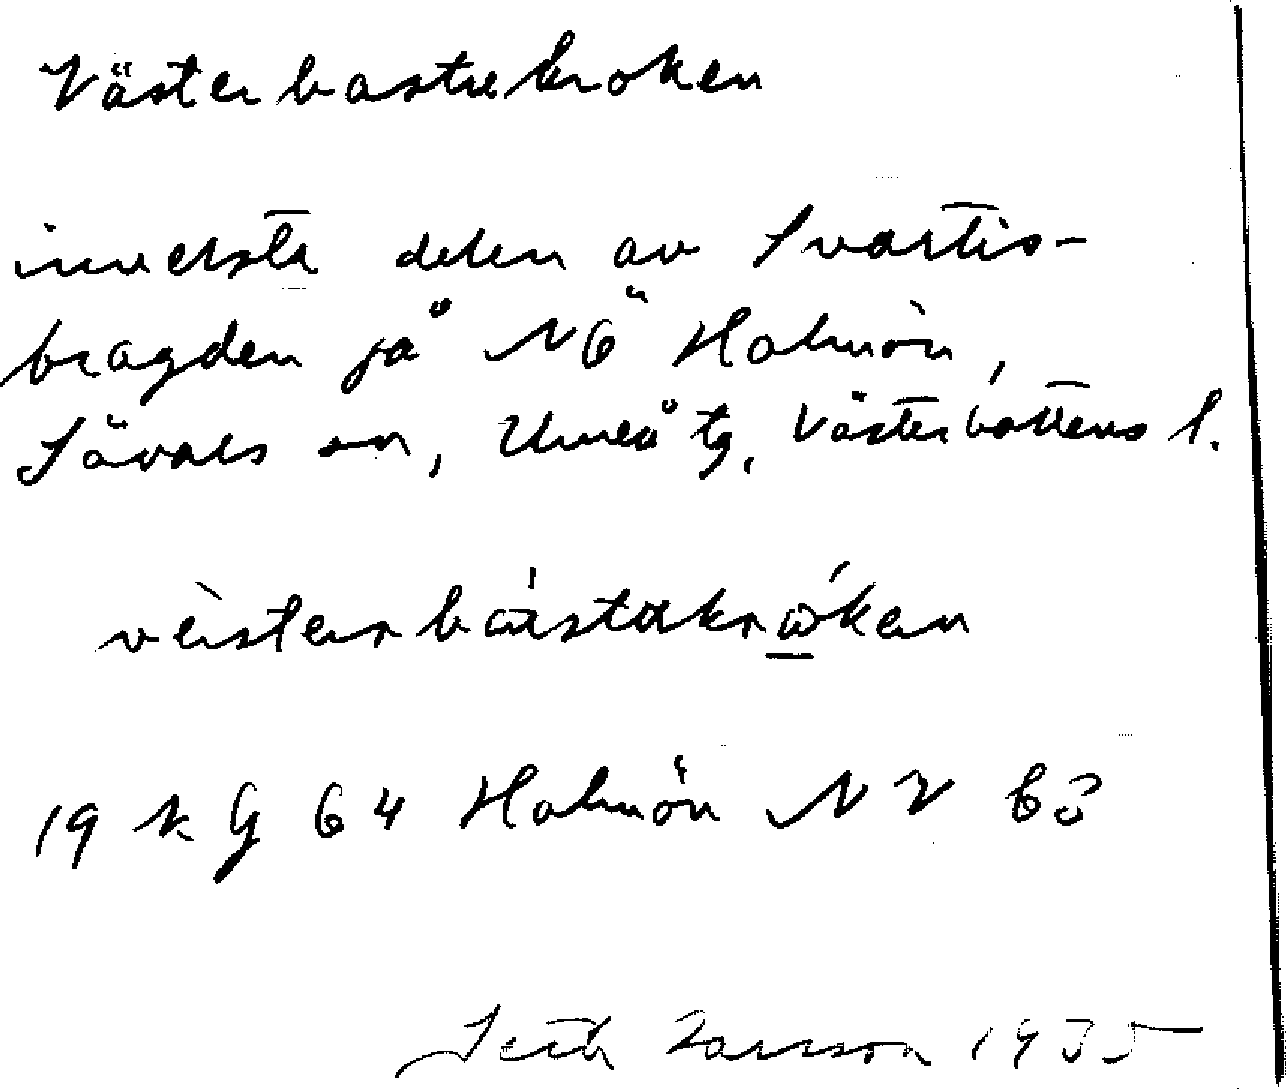 Västerbastukroken
innersta delen av Svartis-
bragden på NÖ Holmön,
Sävars sn, Umeå tg, Västerbottens l.
19 k G 64 Holmön NV 63
Larsson 1935